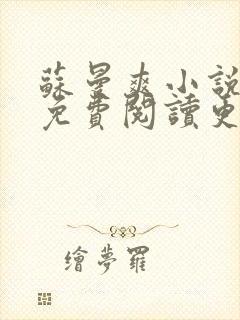 蘇曼爽小說
免費閱讀更
繪夢羅